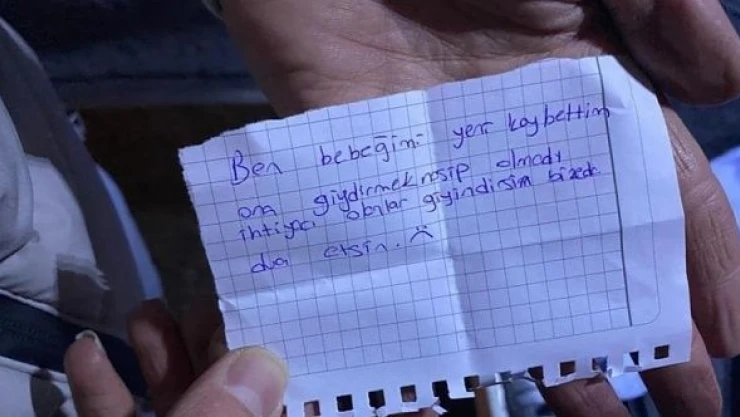 Ben bebeğimi yeni kaybettim
ona giydirmek nasip olmadı
ihtiyacı olanlar giyindirsin bizede
dua etsin. :(